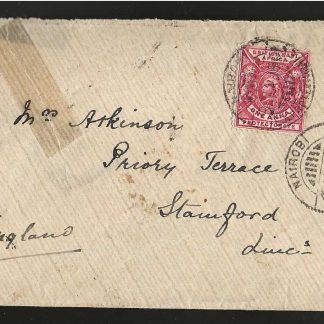 BRITISH EAST
AFRICA
ONE ANNA
PROTECTORATE
Mrs Atkinson
Priory Terrace
Stamford
Lincs
England
NAIROBI